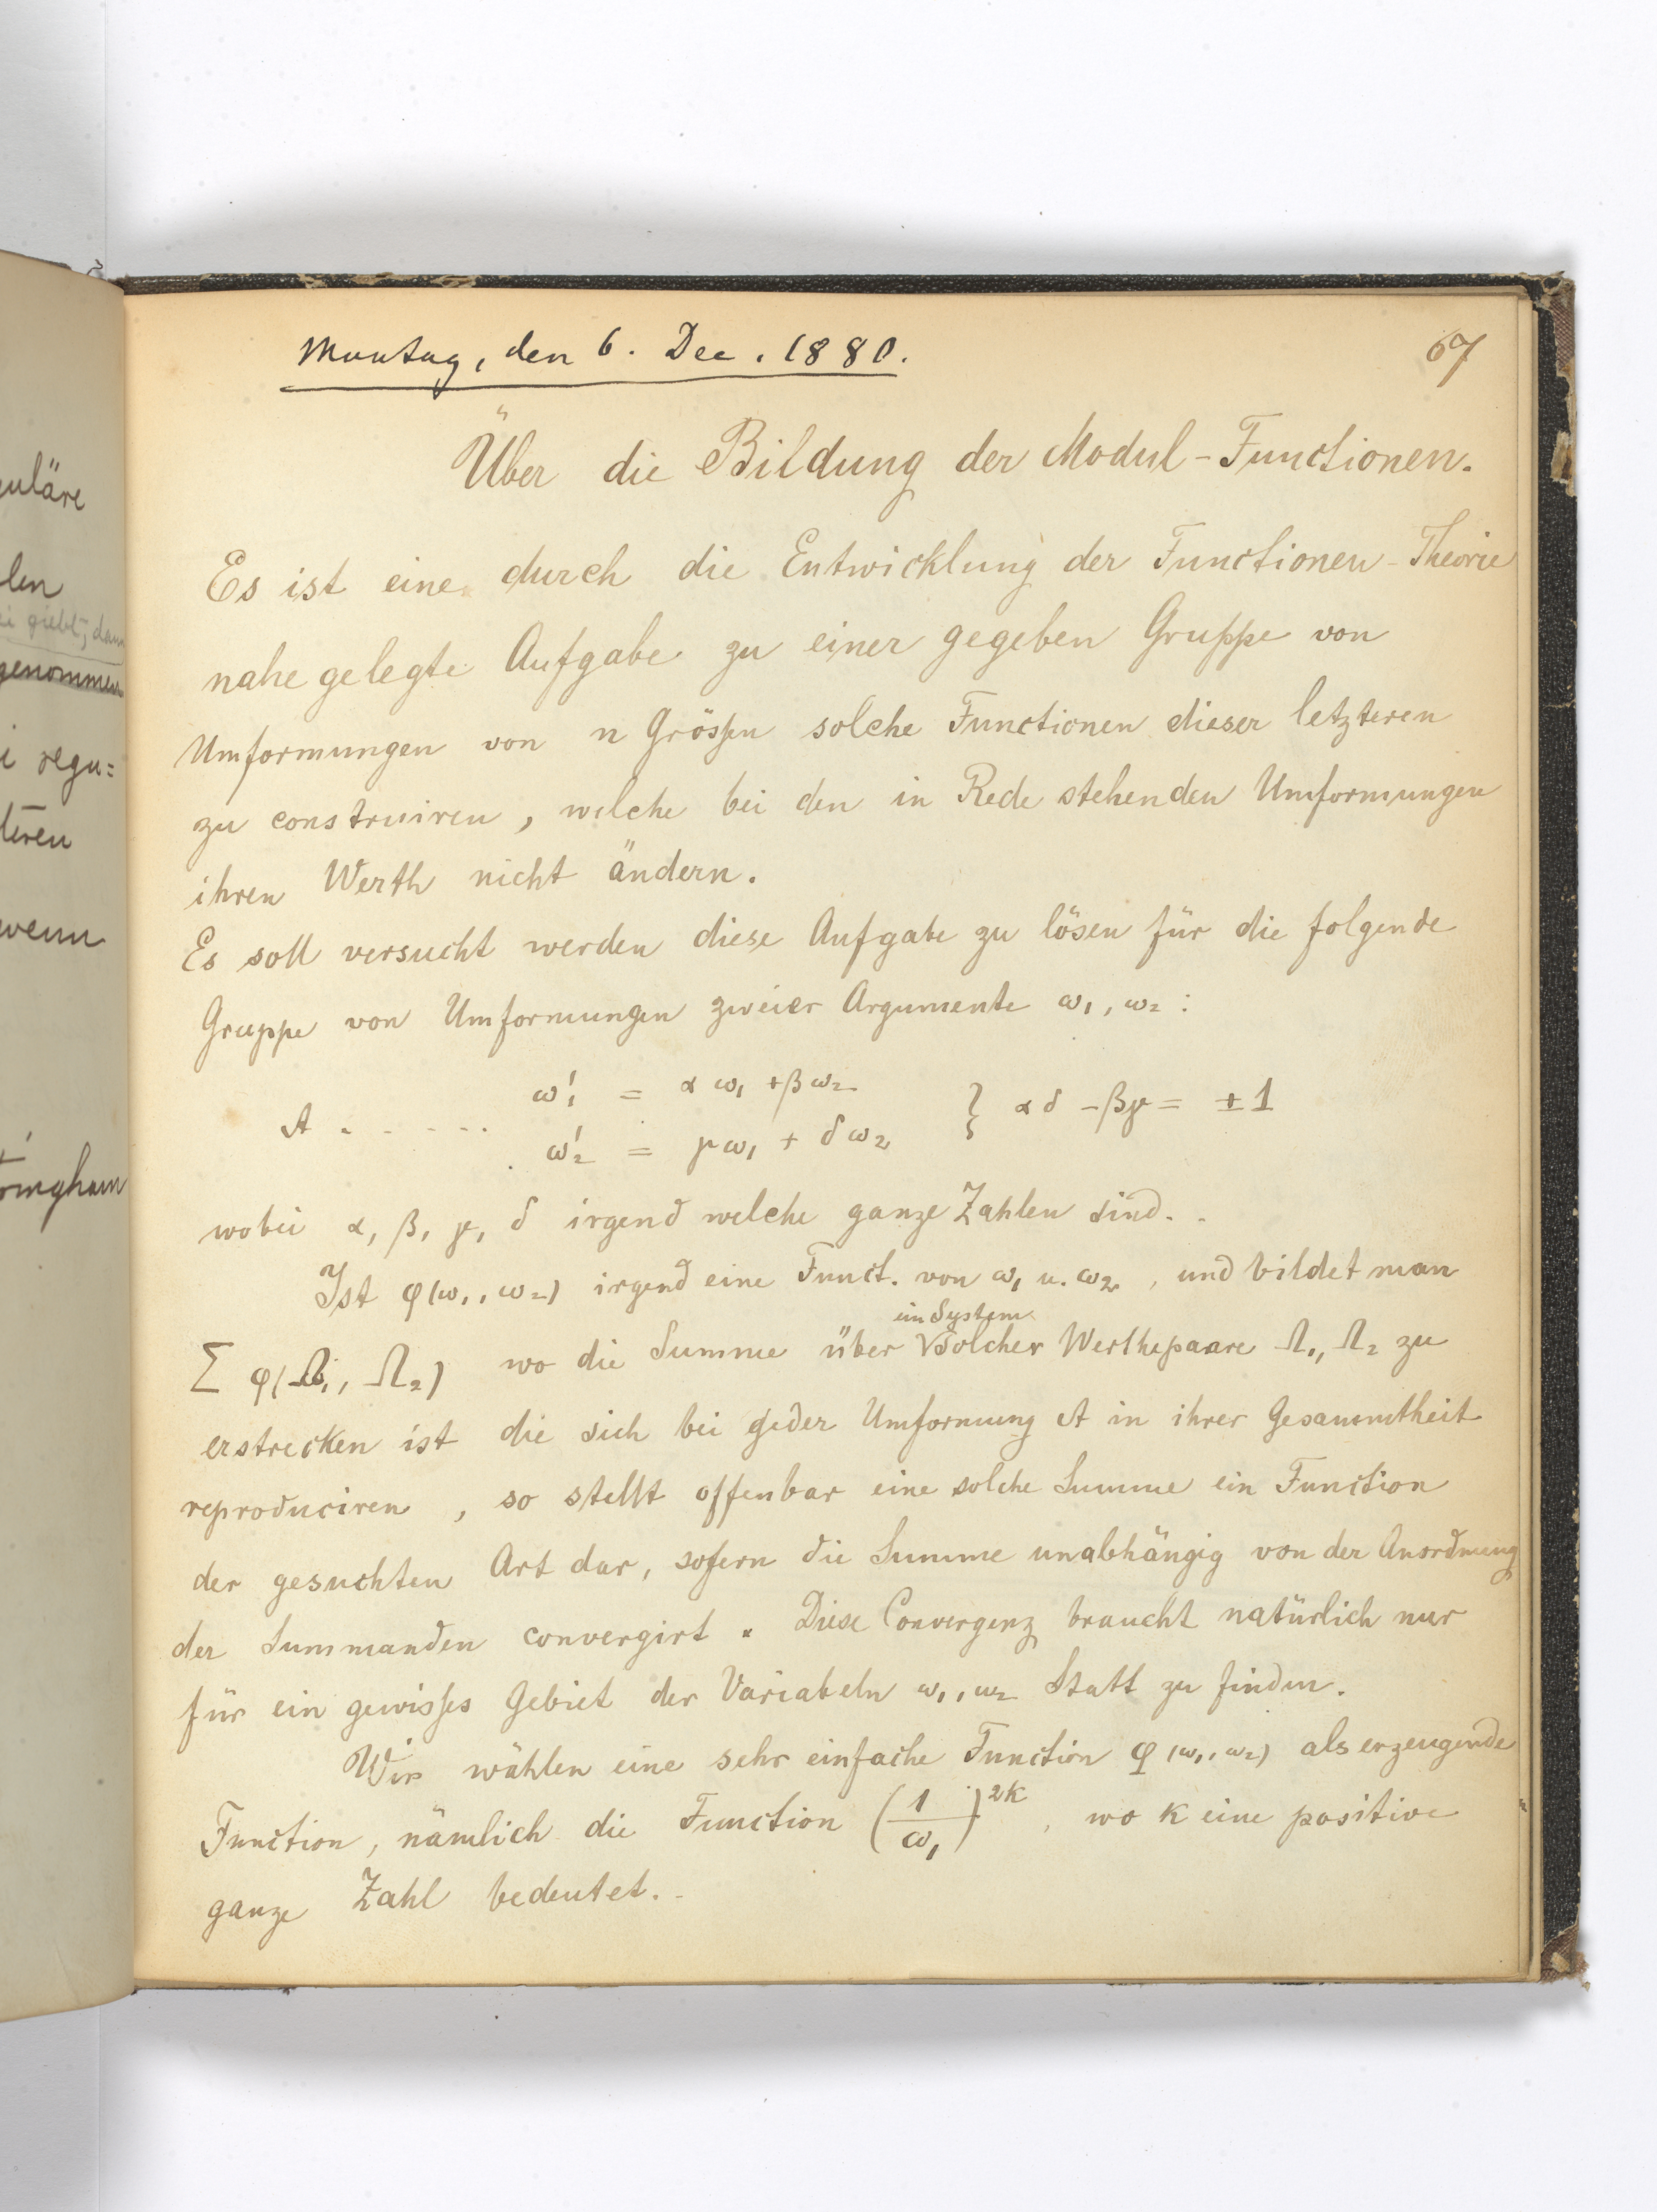 uläre
len
ei giebt, dann
genommen
i regu=
teren
wenn
ringham
Montag, den 6. Dec. 1880.
67
Über die Bildung der Modul-Functionen.
Es ist eine durch die Entwicklung der Functionen-Theorie
nahe gelegte Aufgabe zu einer gegeben Gruppe von
Umformungen von n Größen solche Functionen dieser letzteren
zu construiren, welche bei den in Rede stehenden Umformungen
ihren Werth nicht ändern.
Es soll versucht werden diese Aufgabe zu lösen für die folgende
Gruppe von Umformungen zweier Argumente ω₁, ω₂:
ω₁' = αω₁ + βω₂
A . . . . . } αδ - βγ = ±1
ω₂' = γω₁ + δω₂
wobei α, β, γ, δ irgend welche ganze Zahlen sind.
Ist φ(ω₁, ω₂) irgend eine Funct. von ω₁ u. ω₂, und bildet man
ein System
Σ φ(Ω₁, Ω₂) wo die Summe über solcher Werthepaare Ω₁, Ω₂ zu
erstrecken ist die sich bei jeder Umformung A in ihrer Gesammtheit
reproduciren, so stellt offenbar eine solche Summe ein Function
der gesuchten Art dar, sofern die Summe unabhängig von der Anordnung
der Summanden convergirt. Diese Convergenz braucht natürlich nur
für ein gewisses Gebiet der Variabeln ω₁, ω₂ Statt zu finden.
Wir wählen eine sehr einfache Function φ(ω₁, ω₂) als erzeugende
Function, nämlich die Function (1/ω₁)^2k, wo k eine positive
ganze Zahl bedeutet.